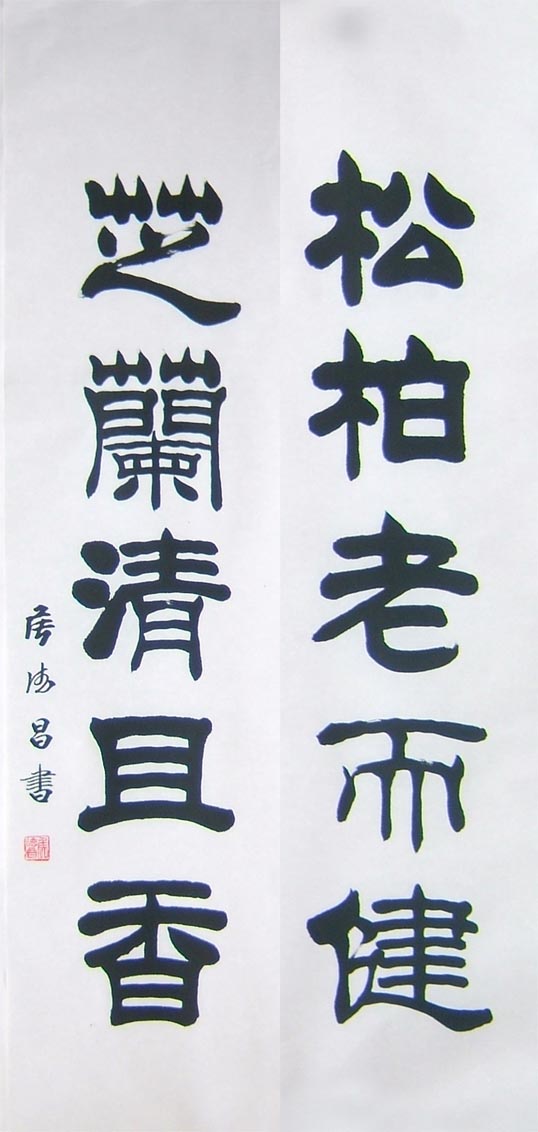 松柏老而健
芝蘭清且香
昌書